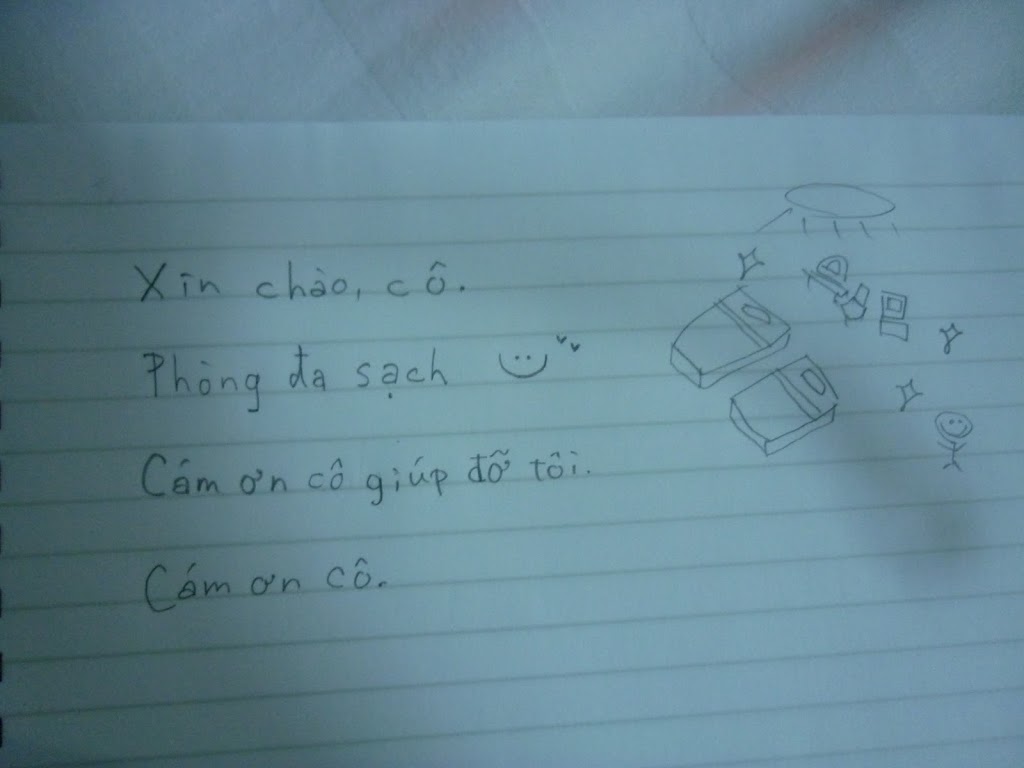 Xin chào, cô.
Phòng đa sạch
Cám ơn cô giúp đỡ tôi.
Cám ơn cô.